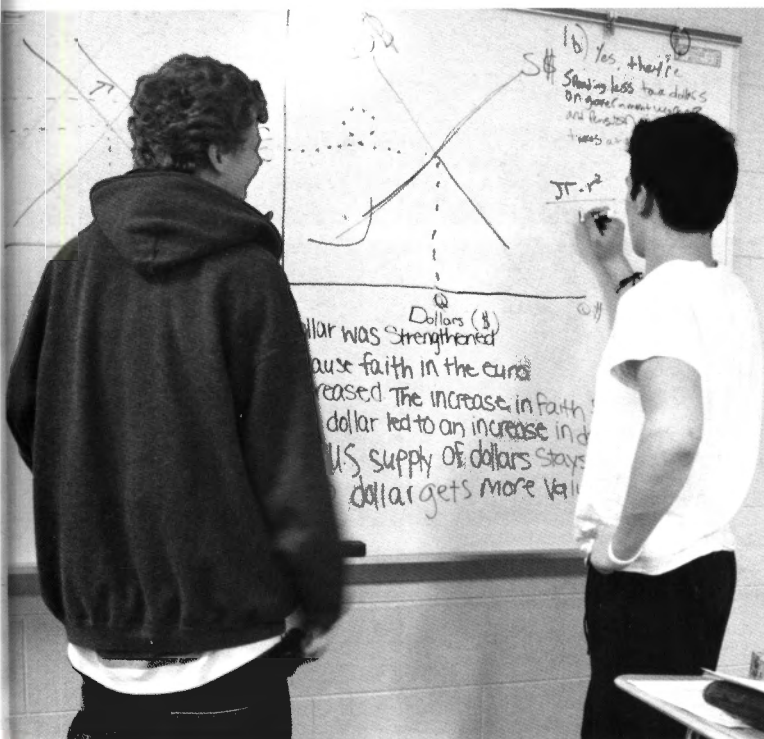 S$
1b) Yes, they're
Spending less
on government
and
times
π·r²
Q
Dollars ($)
llar was Strengthened
ause faith in the euro
reased The increase in faith
dollar led to an increase in d
U.S. supply of dollars stays
dollar gets more val